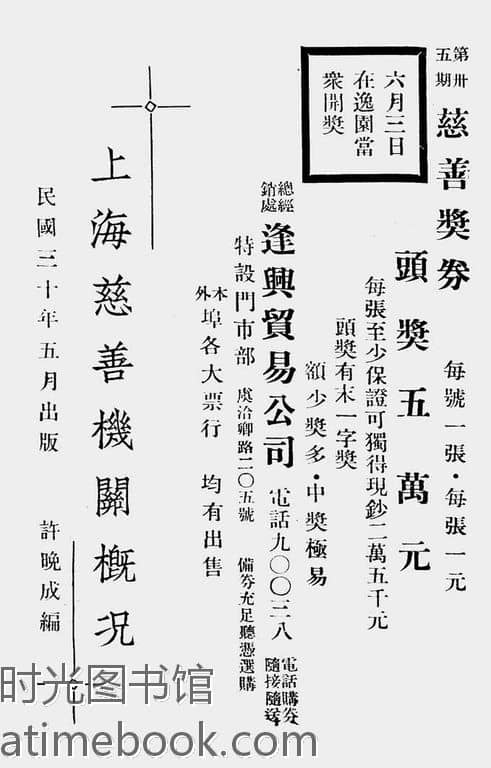 第卅五期
慈善獎券
每號一張·每張一元
頭獎五萬元
六月三日
在逸園當
衆開獎
每張至少保證可獨得現鈔二萬五千元
頭獎有末一字獎
額少獎多·中獎極易
總經銷處
逢興貿易公司
電話九〇〇三八
電話購券
隨接隨送
特設門市部
虞洽卿路二〇五號
備券充足聽憑選購
本外埠各大票行
均有出售
上海慈善機關概況
民國三十年五月出版
許晚成編
时光图书馆
atimebook.com